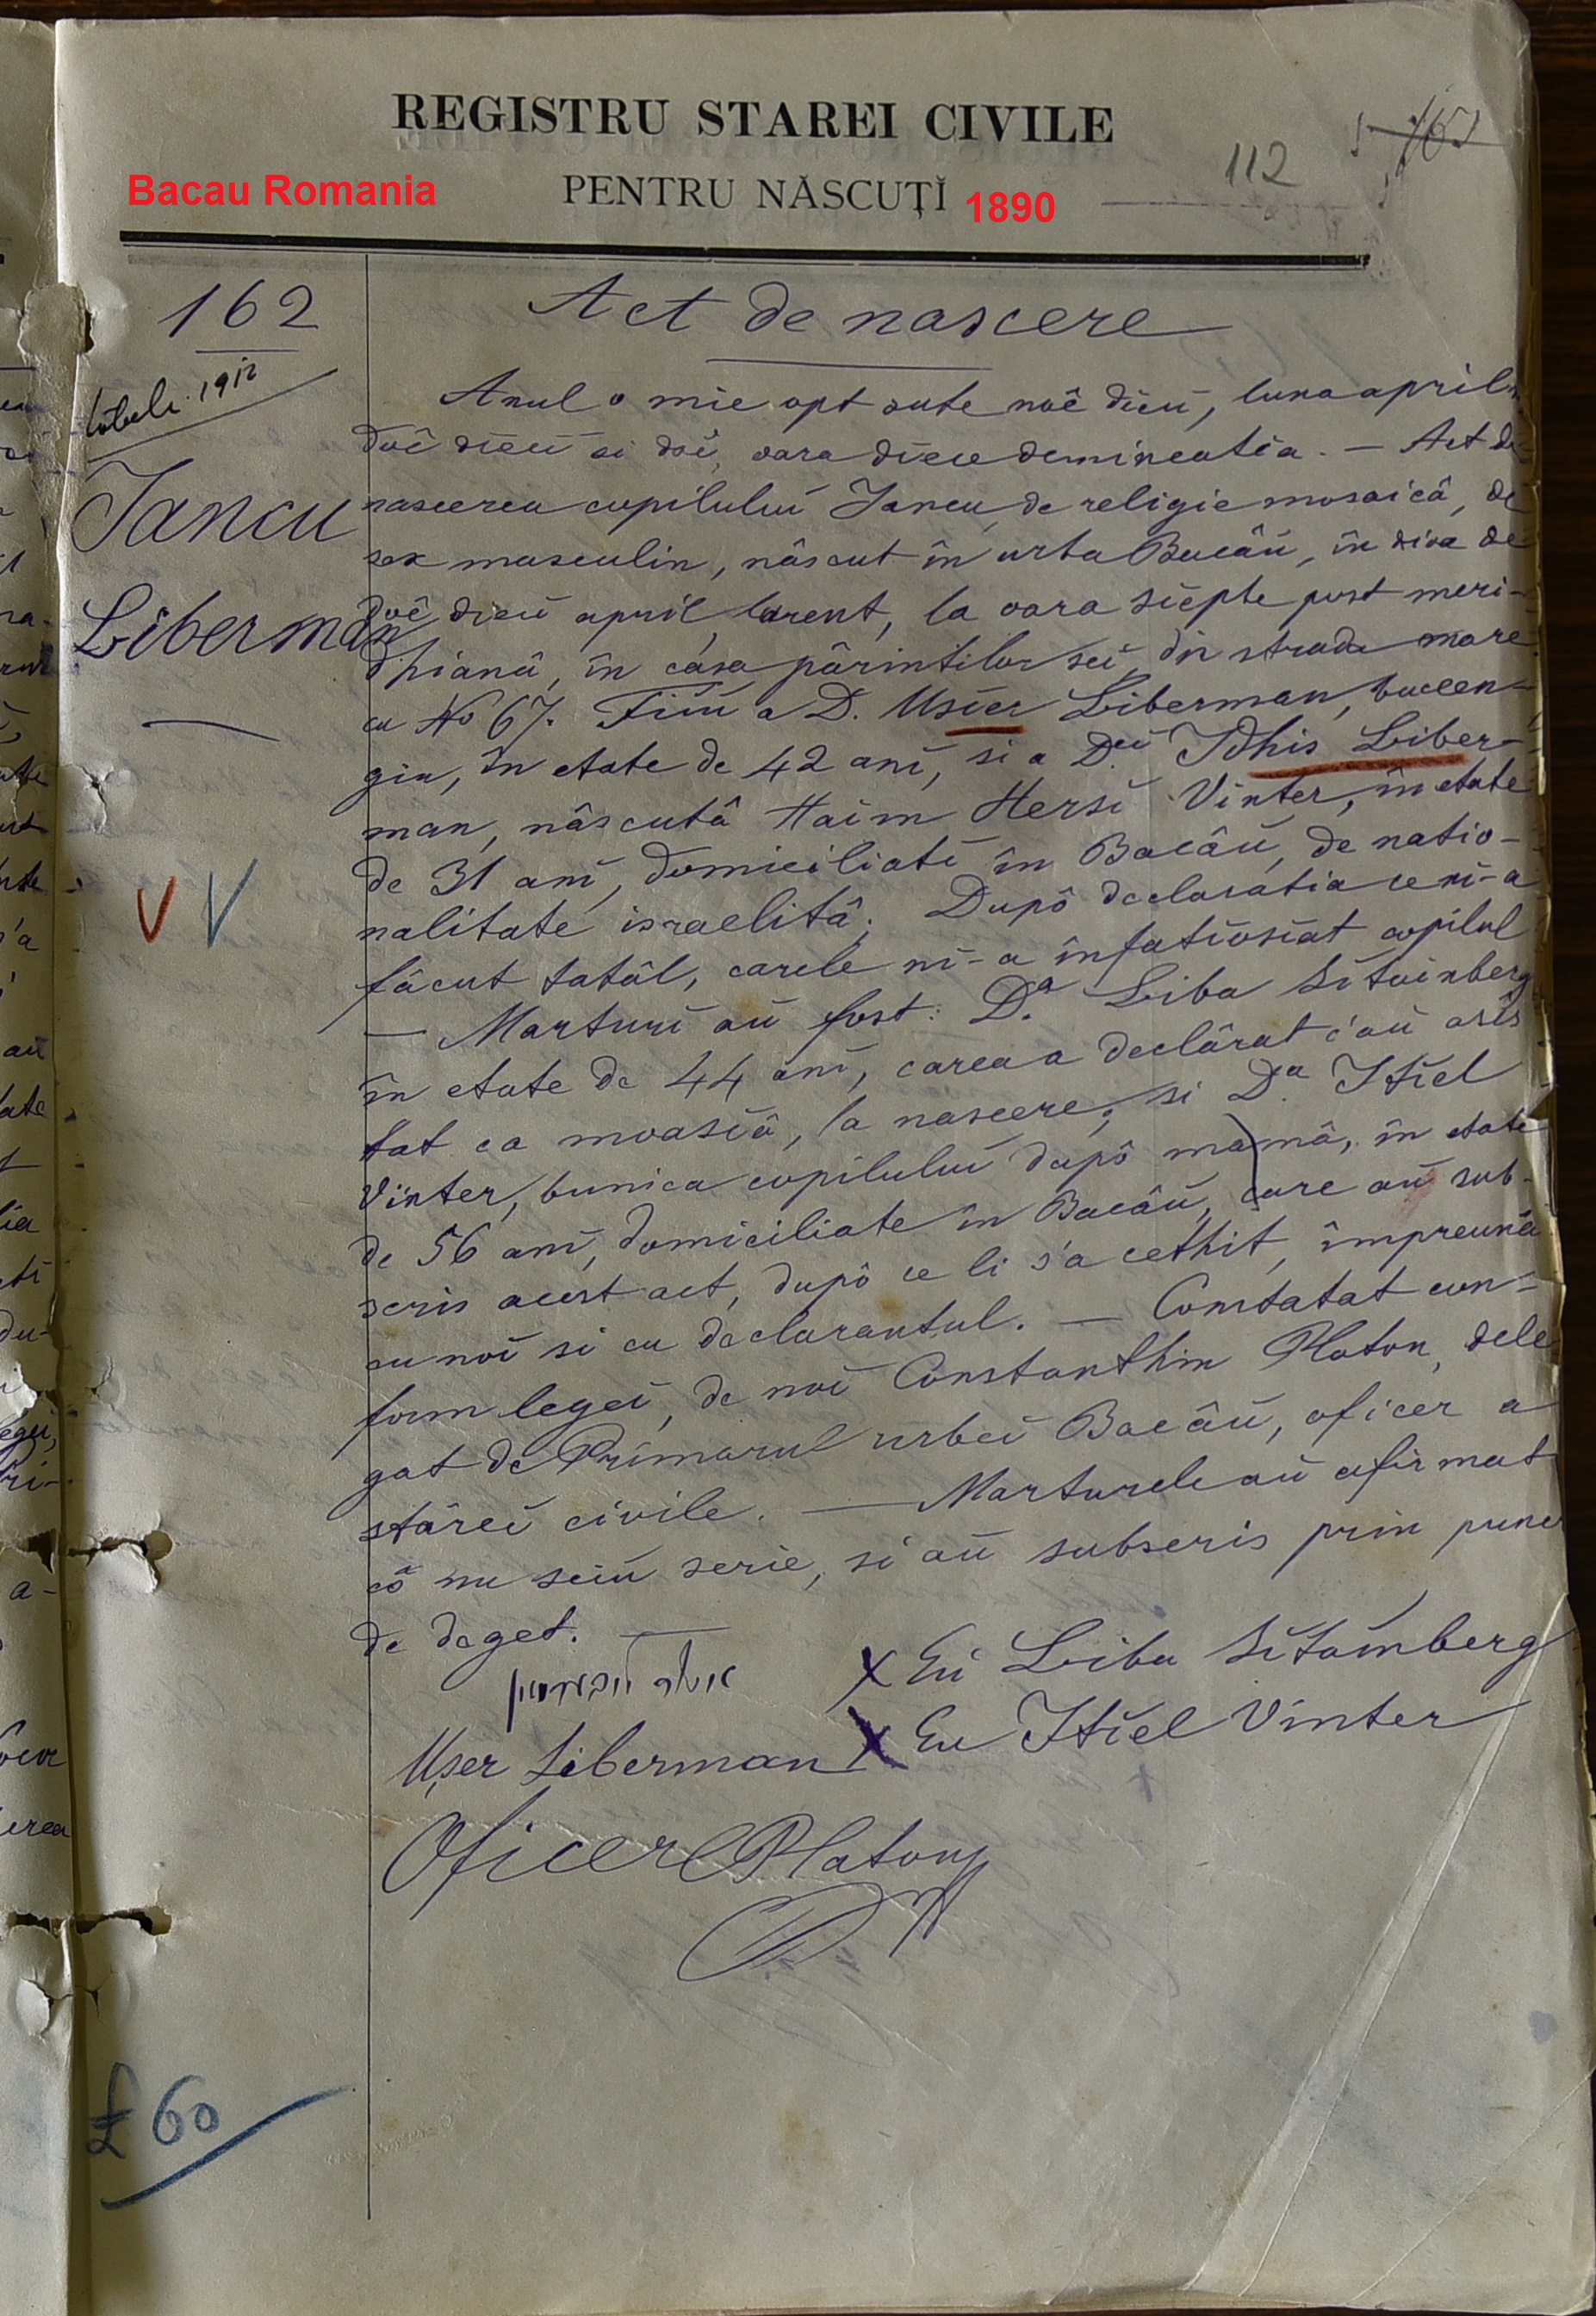 REGISTRU STAREI CIVILE
112
Bacau Romania
PENTRU NĂSCUȚĬ 1890
162
Act de nascere
1912
Anul o mie opt sute noê dieci, luna april
Iancu
Liberman
doê dieci si doi, oara diece demineatia. — Act de
nascerea copilului Iancu, de religie mosaicâ, de
sex masculin, nâscut în urba Bacâŭ, în dioa de
doê dieci april curent, la oara siepte post meri-
dhianâ, în casa pârintilor sei, din strada mare
cu No 67. Fiiŭ a D. Usier Liberman, buccen-
giu, în etate de 42 anĭ, si a D.eĭ Idhis Liber-
man, nâscutâ Haim Hersĭ Vinter, în etate
de 31 anĭ, domiciliatĭ în Bacâŭ, de natio-
nalitate israelitâ; Dupô declaratia ce nĭ-a
fâcut tatâl, carele nĭ-a înfatiosiat copilul
— Marturĭ aŭ fost: D.a Liba Sĭtainberg
în etate de 44 anĭ, carea a declârat c'aŭ asis
tat ca moasiâ, la nascere; si D.a Itĭel
Vinter, bunica copiluluĭ dupô mamâ, în etate
de 56 anĭ, domiciliate în Bacâŭ, care aŭ sub-
scris acest act, dupô ce li s'a cethit, împreunâ
cu noĭ si cu declarantul. — Constatat con-
form legeĭ, de noĭ Constanthin Platon, dele
gat de Primarul urbeĭ Bacâŭ, oficer a
stâreĭ civile. — Marturele aŭ afirmat
cô nu sciŭ scrie, si aŭ subscris prin pune
de deget. —
אושר ליבערמאן
X Eŭ Liba Sĭtainberg
Ușer Liberman
X Eu Itĭel Vinter
Oficer CPlaton
V V
£ 60